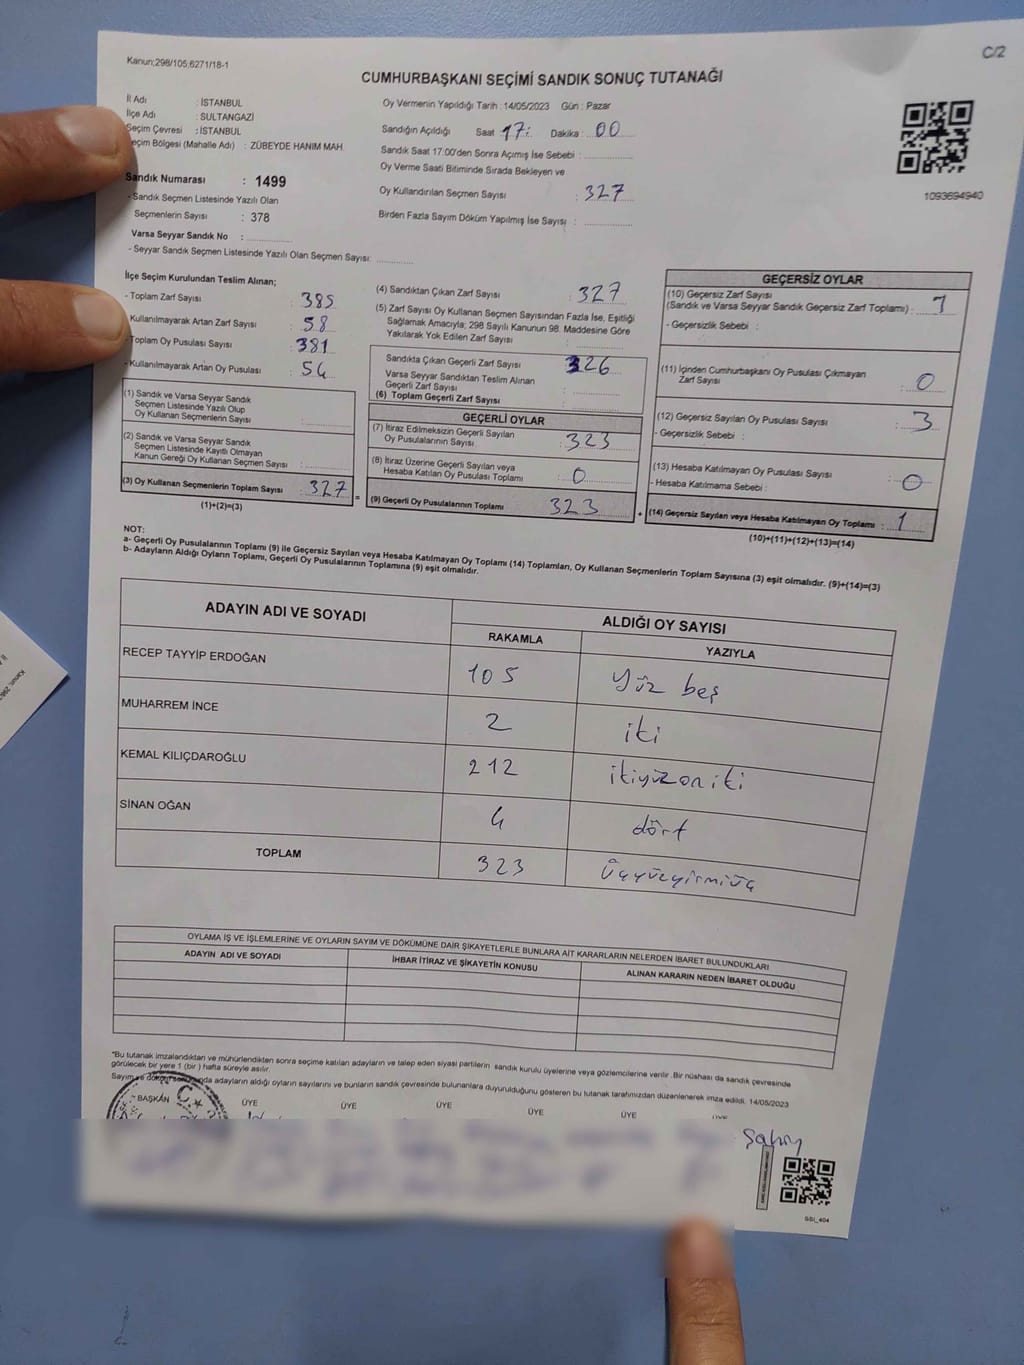 C/2
Kanun;298/105,6271/18-1
CUMHURBAŞKANI SEÇİMİ SANDIK SONUÇ TUTANAĞI
İl Adı : İSTANBUL
İlçe Adı : SULTANGAZİ
Seçim Çevresi : İSTANBUL
eçim Bölgesi (Mahalle Adı) : ZÜBEYDE HANIM MAH.
Sandık Numarası : 1499
- Sandık Seçmen Listesinde Yazılı Olan
Seçmenlerin Sayısı : 378
Varsa Seyyar Sandık No :
- Seyyar Sandık Seçmen Listesinde Yazılı Olan Seçmen Sayısı:
Oy Vermenin Yapıldığı Tarih : 14/05/2023 Gün : Pazar
Sandığın Açıldığı Saat 17: Dakika : 00
Sandık Saat 17:00'den Sonra Açımış İse Sebebi :
Oy Verme Saati Bitiminde Sırada Bekleyen ve
Oy Kullandırılan Seçmen Sayısı : 327
Birden Fazla Sayım Döküm Yapılmış İse Sayısı :
1093694940
İlçe Seçim Kurulundan Teslim Alınan;
- Toplam Zarf Sayısı : 385
Kullanılmayarak Artan Zarf Sayısı : 58
- Toplam Oy Pusulası Sayısı : 381
- Kullanılmayarak Artan Oy Pusulası : 54
(1) Sandık ve Varsa Seyyar Sandık
Seçmen Listesinde Yazılı Olup
Oy Kullanan Seçmenlerin Sayısı :
(2) Sandık ve Varsa Seyyar Sandık
Seçmen Listesinde Kayıtlı Olmayan
Kanun Gereği Oy Kullanan Seçmen Sayısı :
(3) Oy Kullanan Seçmenlerin Toplam Sayısı : 327 =
(1)+(2)=(3)
(4) Sandıktan Çıkan Zarf Sayısı : 327
(5) Zarf Sayısı Oy Kullanan Seçmen Sayısından Fazla İse, Eşitliği
Sağlamak Amacıyla; 298 Sayılı Kanunun 98. Maddesine Göre
Yakılarak Yok Edilen Zarf Sayısı :
Sandıkta Çıkan Geçerli Zarf Sayısı 326
Varsa Seyyar Sandıktan Teslim Alınan
Geçerli Zarf Sayısı :
(6) Toplam Geçerli Zarf Sayısı :
GEÇERLİ OYLAR
(7) İtiraz Edilmeksizin Geçerli Sayılan
Oy Pusulalarının Sayısı : 323
(8) İtiraz Üzerine Geçerli Sayılan veya
Hesaba Katılan Oy Pusulası Toplamı : 0
(9) Geçerli Oy Pusulalarının Toplamı : 323 +
GEÇERSİZ OYLAR
(10) Geçersiz Zarf Sayısı
(Sandık ve Varsa Seyyar Sandık Geçersiz Zarf Toplamı) : 1
- Geçersizlik Sebebi :
(11) İçinden Cumhurbaşkanı Oy Pusulası Çıkmayan
Zarf Sayısı : 0
(12) Geçersiz Sayılan Oy Pusulası Sayısı : 3
- Geçersizlik Sebebi :
(13) Hesaba Katılmayan Oy Pusulası Sayısı : 0
- Hesaba Katılmama Sebebi :
(14) Geçersiz Sayılan veya Hesaba Katılmayan Oy Toplamı : 1
(10)+(11)+(12)+(13)=(14)
NOT:
a- Geçerli Oy Pusulalarının Toplamı (9) ile Geçersiz Sayılan veya Hesaba Katılmayan Oy Toplamı (14) Toplamları, Oy Kullanan Seçmenlerin Toplam Sayısına (3) eşit olmalıdır. (9)+(14)=(3)
b- Adayların Aldığı Oyların Toplamı, Geçerli Oy Pusulalarının Toplamına (9) eşit olmalıdır.
ADAYIN ADI VE SOYADI ALDIĞI OY SAYISI
RAKAMLA YAZIYLA
RECEP TAYYİP ERDOĞAN 105 Yüz beş
MUHARREM İNCE 2 iki
KEMAL KILIÇDAROĞLU 212 ikiyüzoniki
SİNAN OĞAN 4 dört
TOPLAM 323 Üçyüzyirmiüç
OYLAMA İŞ VE İŞLEMLERİNE VE OYLARIN SAYIM VE DÖKÜMÜNE DAİR ŞİKAYETLERLE BUNLARA AİT KARARLARIN NELERDEN İBARET BULUNDUKLARI
ADAYIN ADI VE SOYADI İHBAR İTİRAZ VE ŞİKAYETİN KONUSU ALINAN KARARIN NEDEN İBARET OLDUĞU
"Bu tutanak imzalandıktan ve mühürlendikten sonra seçime katılan adayların ve talep eden siyasi partilerin sandık kurulu üyelerine veya gözlemcilerine verilir. Bir nüshası da sandık çevresinde
görülecek bir yere 1 (bir ) hafta süreyle asılır.
Sayım ve döküm sonunda adayların aldığı oyların sayılarını ve bunların sandık çevresinde bulunanlara duyurulduğunu gösteren bu tutanak tarafımızdan düzenlenerek imza edildi. 14/05/2023
BAŞKAN ÜYE ÜYE ÜYE ÜYE ÜYE ÜYE
SSI_404